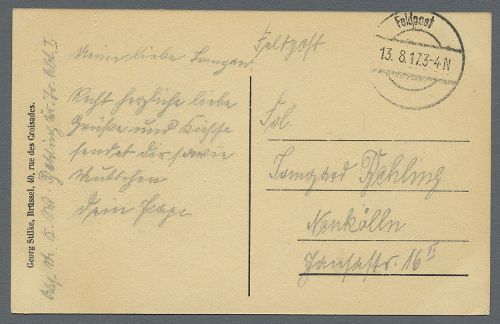 Feldpost
13. 8. 17. 3-4 N
Feldpost
Meine liebe Irmgard
Recht herzliche liebe
Grüße und Küsse
sendet dir sowie
Muttchen
Dein Papa
Frl.
Irmgard Dehling
Neukölln
Jansastr. 16 II
Georg Stilke, Brüssel, 40, rue des Croisades.
Dehling